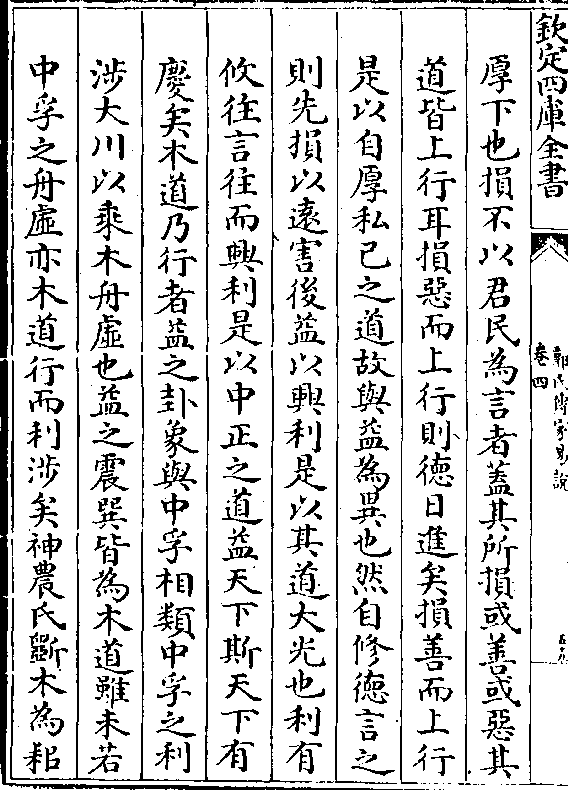 欽定四庫全書
郭氏傳家易說
卷四
厚下也損不以君民為言者蓋其所損或善或惡其
道皆上行耳損惡而上行則德日進矣損善而上行
是以自厚私己之道故與益為異也然自修德言之
則先損以遠害後益以興利是以其道大光也利有
攸往言往而興利是以中正之道益天下斯天下有
慶矣木道乃行者益之卦象與中孚相類中孚之利
涉大川以乘木舟虛也益之震巽皆為木道雖未若
中孚之舟虛亦木道行而利涉矣神農氏斵木為耜